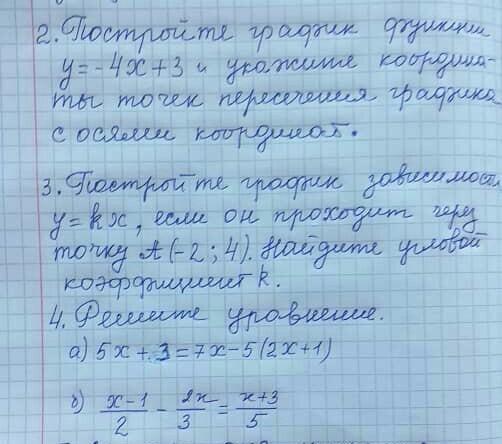 2. Постройте график функции
y = -4x + 3 и укажите координа-
ты точек пересечения графика
с осями координат.
3. Постройте график зависимости
y = kx, если он проходит через
точку A (-2; 4). Найдите угловой
коэффициент k.
4. Решите уравнение.
а) 5x + 3 = 7x - 5(2x+1)
б) (x-1)/2 - 2x/3 = (x+3)/5